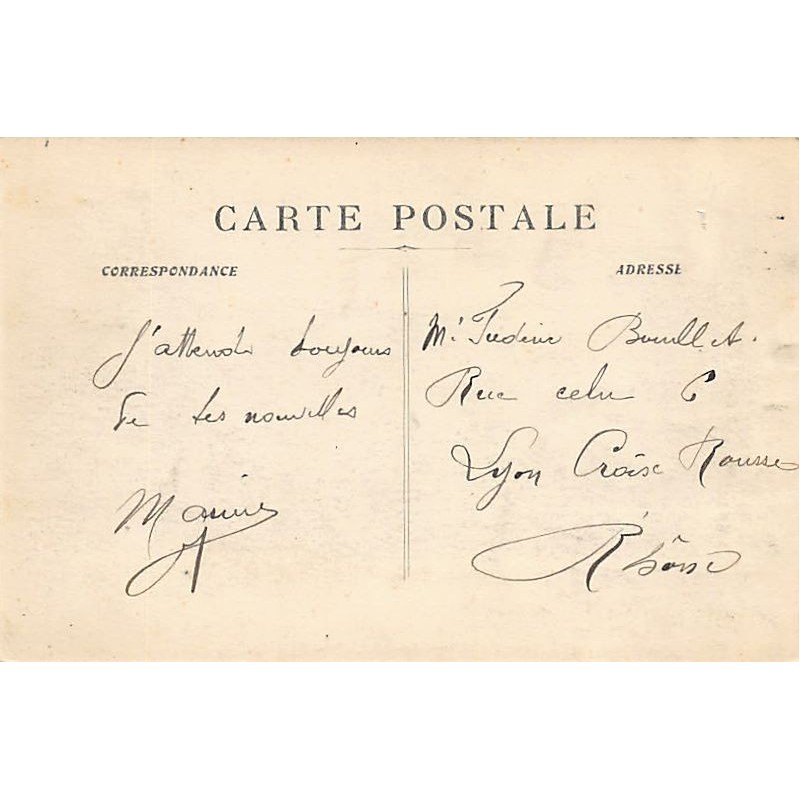 CARTE POSTALE
CORRESPONDANCE
ADRESSE
J'attends toujours
de tes nouvelles
Mr
Rue 6
Lyon Croix Rousse
Rhône